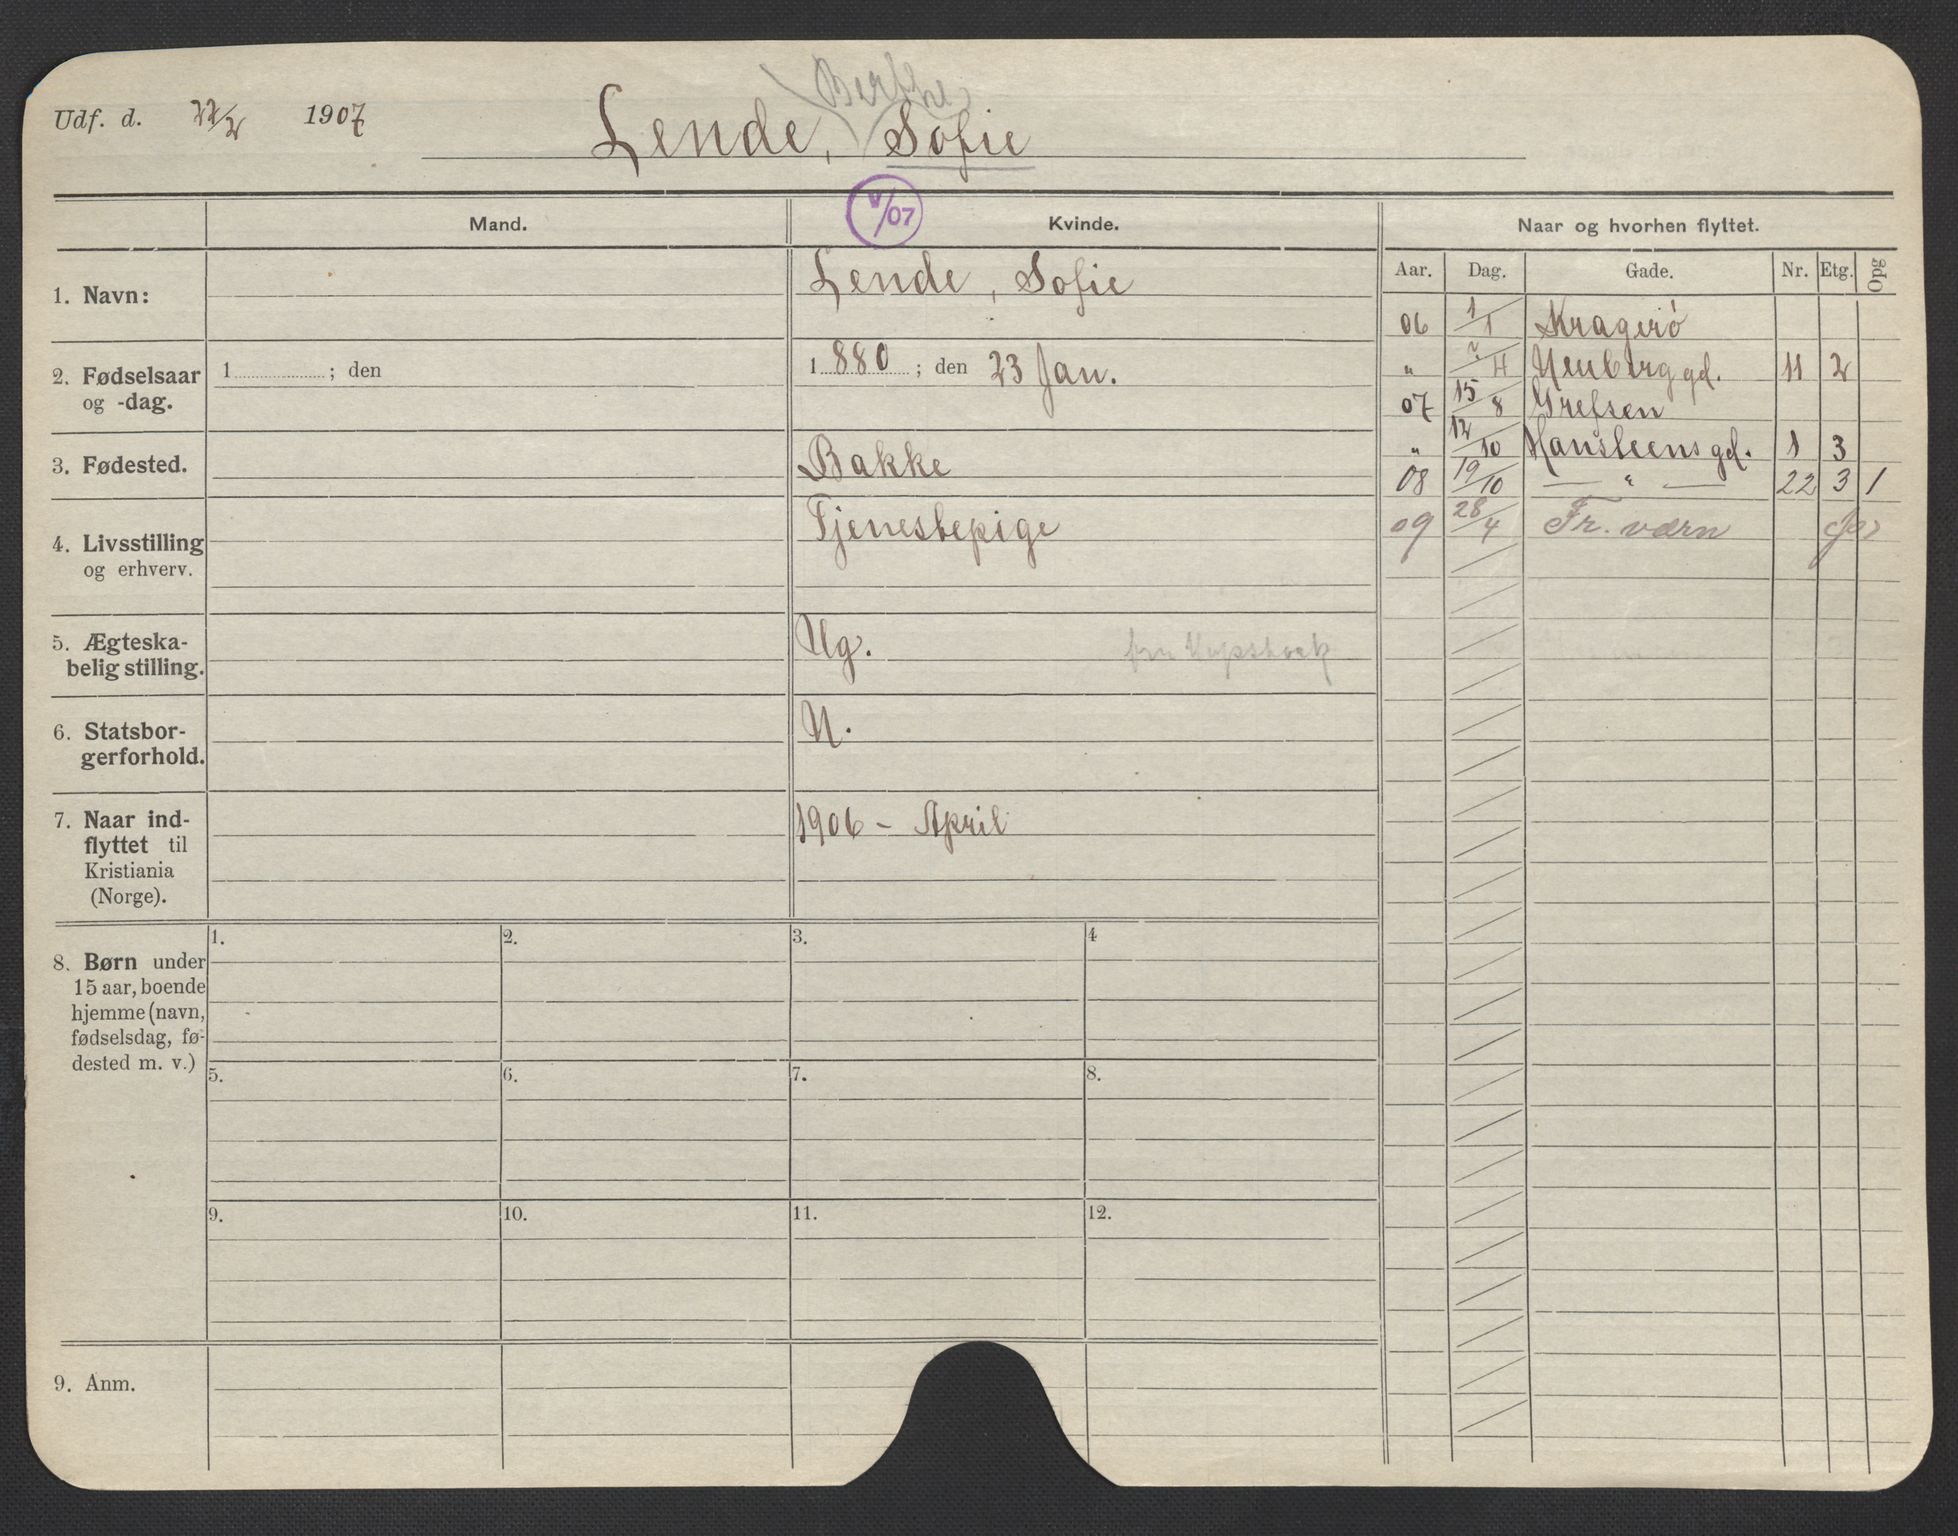 Udf. d. 22/2 1907
Berthe
Lende, Sofie
V/07
Mand. Kvinde. Naar og hvorhen flyttet.
Aar. Dag. Gade. Nr. Etg. Opg
1. Navn: Lende, Sofie
2. Fødselsaar og -dag. 1 ; den 1 880 ; den 23 Jan.
3. Fødested. Bakke
4. Livsstilling og erhverv. Tjenestepige
5. Ægteska-
belig stilling. Ug.
6. Statsbor-
gerforhold. N.
7. Naar ind-
flyttet til
Kristiania
(Norge). 1906 - April
06 1/1 Kragerø
" ?/4 Neuberggd. 11 2
07 15/8 Grefsen
" 12/10 Hansteensgd. 1 3
08 19/10 — " — 22 3 1
09 28/4 Fr. værn
8. Børn under
15 aar, boende
hjemme (navn,
fødselsdag, fø-
dested m. v.)
1. 2. 3. 4
5. 6. 7. 8.
9. 10. 11. 12.
9. Anm.